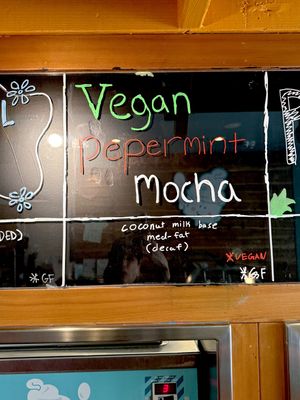 L
Vegan
Pepermint
Mocha
DED)
coconut milk base
med-fat
(decaf)
*VEGAN
*GF
*GF
3